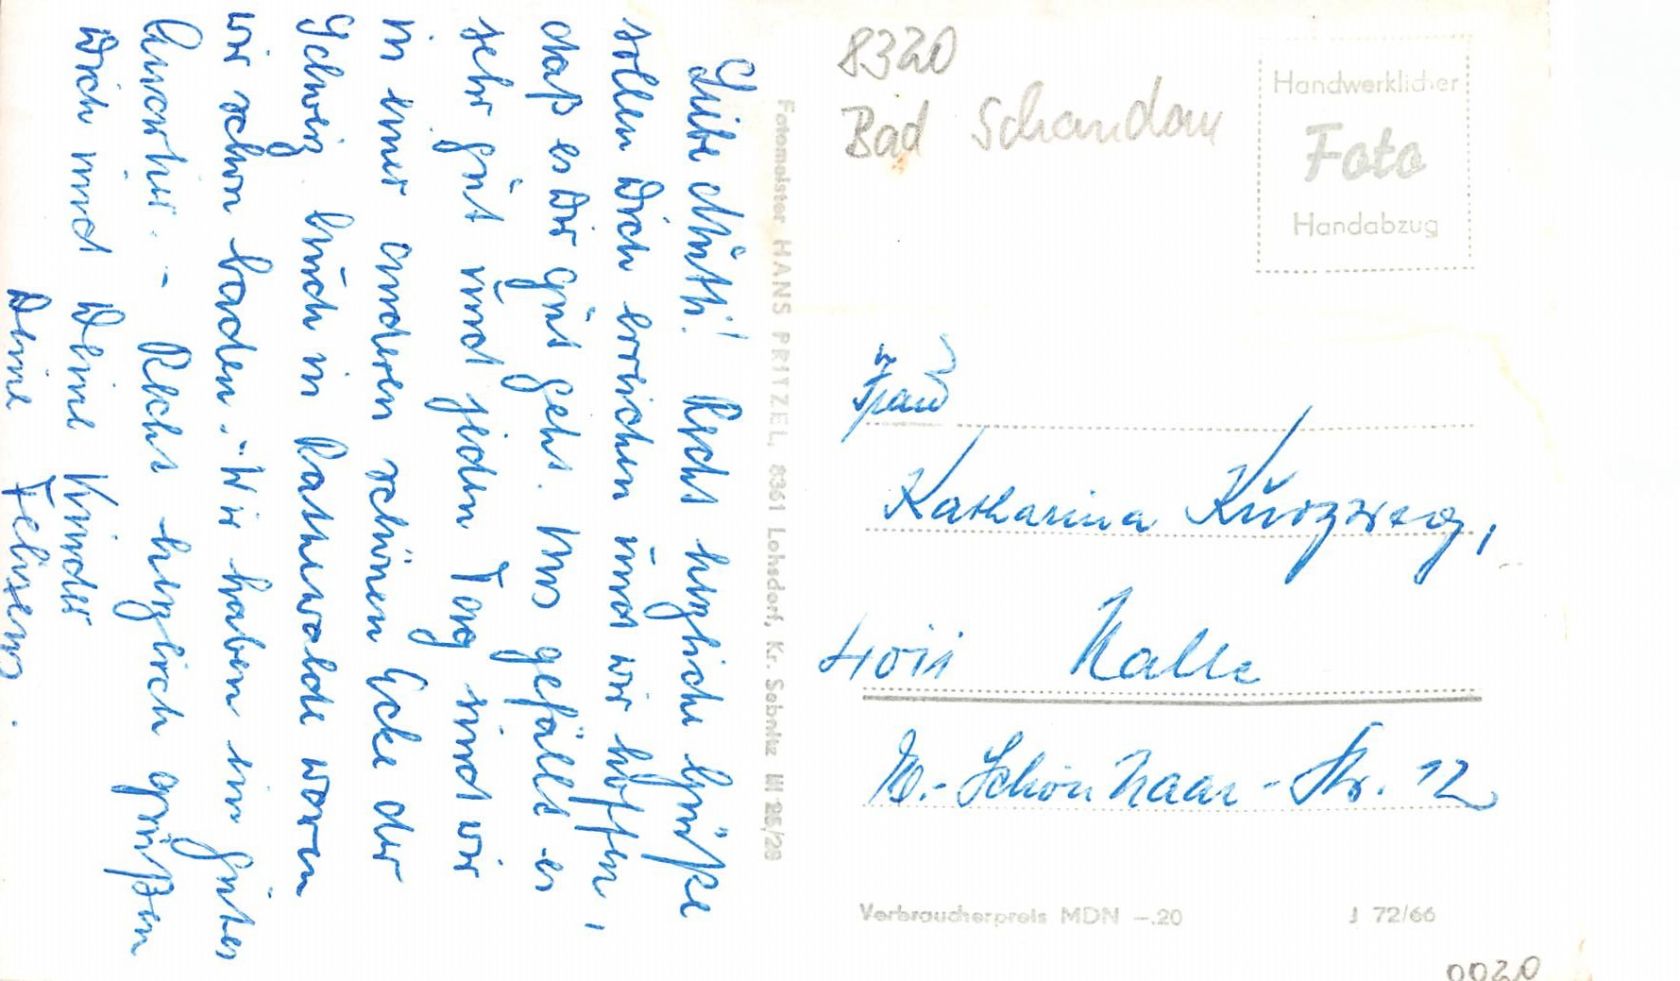 Liebe Muth! Recht herzliche Grüße
sollen Dich erreichen und wir hoffen,
daß es Dir gut geht. Uns gefällt es
sehr gut und jeden Tag sind wir
in einer anderen schönen Ecke der
Schweiz. Auch in Rathewalde waren
wir schon baden. Wir haben ein gutes
Quartier. - Recht herzlich grüßen
Dich und Deine Kinder
Deine
Fotomeister HANS PRITZEL, 8361 Lohsdorf, Kr. Sebnitz III 25/28
8320
Bad Schandau
Handwerklicher
Foto
Handabzug
Frau
Katharina Kurzweg,
4011 Halle
W.-Schönhaar-Str. 12
Verbraucherpreis MDN -.20
J 72/66
0020